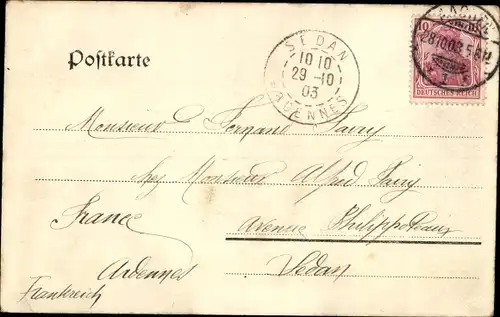 Postkarte
SEDAN
10 10
29 -10
03
ARDENNES
10
28.10.03.5-6N
DEUTSCHES REICH
Monsieur Fernand Savry
chez Monsieur Alfred Savry
France Avenue Philippoteaux
Ardennes Sedan
Frankreich